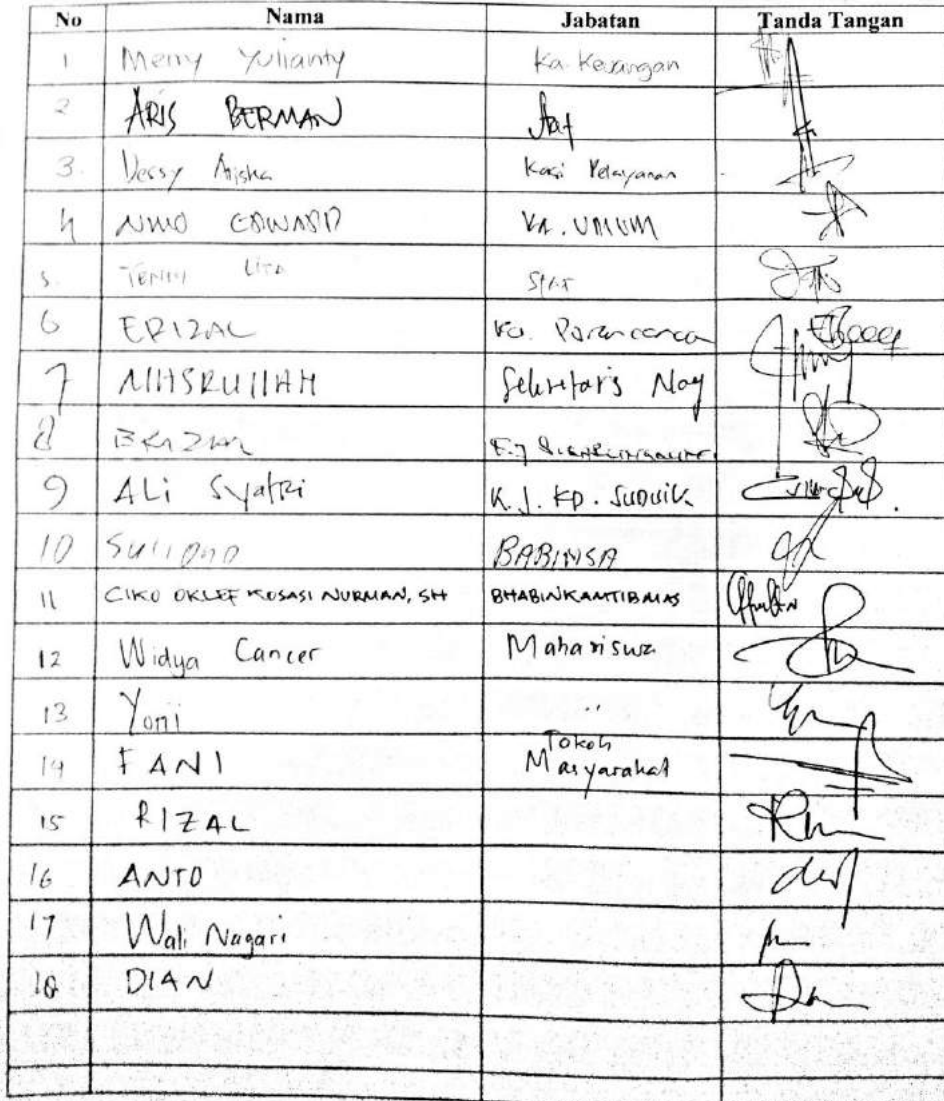 No Nama Jabatan Tanda Tangan
1 Merry Yulianty Ka. Keuangan
2 ARIS BERMAN Staf
3. Dessy Kasi Pelayanan
4 EDWARD KA. UMUM
5. Staf
6 ERIZAL Ka.
7 Sekretaris Nag
8
9 ALi Syafri K.J. KP. SUDUIK
10 BABINSA
11 CIKO OKLEF KOSASI NURMAN, SH BHABINKAMTIBMAS
12 Widya Cancer Mahasiswa
13 Yomi "
14 FANI Tokoh Masyarakat
15 RIZAL
16 ANTO
17 Wali Nagari
18 DIAN